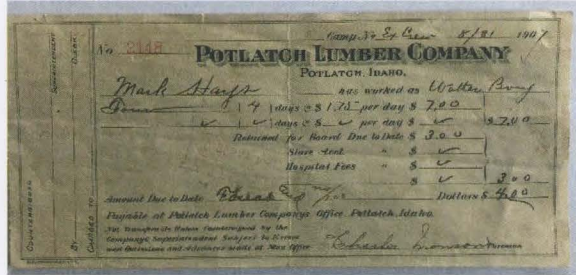 Camp No. Ex Crew 8/31 1907
No. 2148 POTLATCH LUMBER COMPANY
POTLATCH, IDAHO.
Mark Hays has worked as Water Boy
Four 4 days @ $ 1.75 per day $ 7.00
days @ $ per day $ $ 7.00
Returned for Board Due to Date $ 3.00
Store Acct. " $
Hospital Fees " $
$ 3.00
Amount Due to Date Dollars $ 4.00
Payable at Potlatch Lumber Company's Office Potlatch, Idaho.
Not Transferable Unless Countersigned by the
Company's Superintendent Subject to Errors
and Omissions and Advances made at Main Office
Charles Foreman
COUNTERSIGNED SUPERINTENDENT
CHARGED TO BY